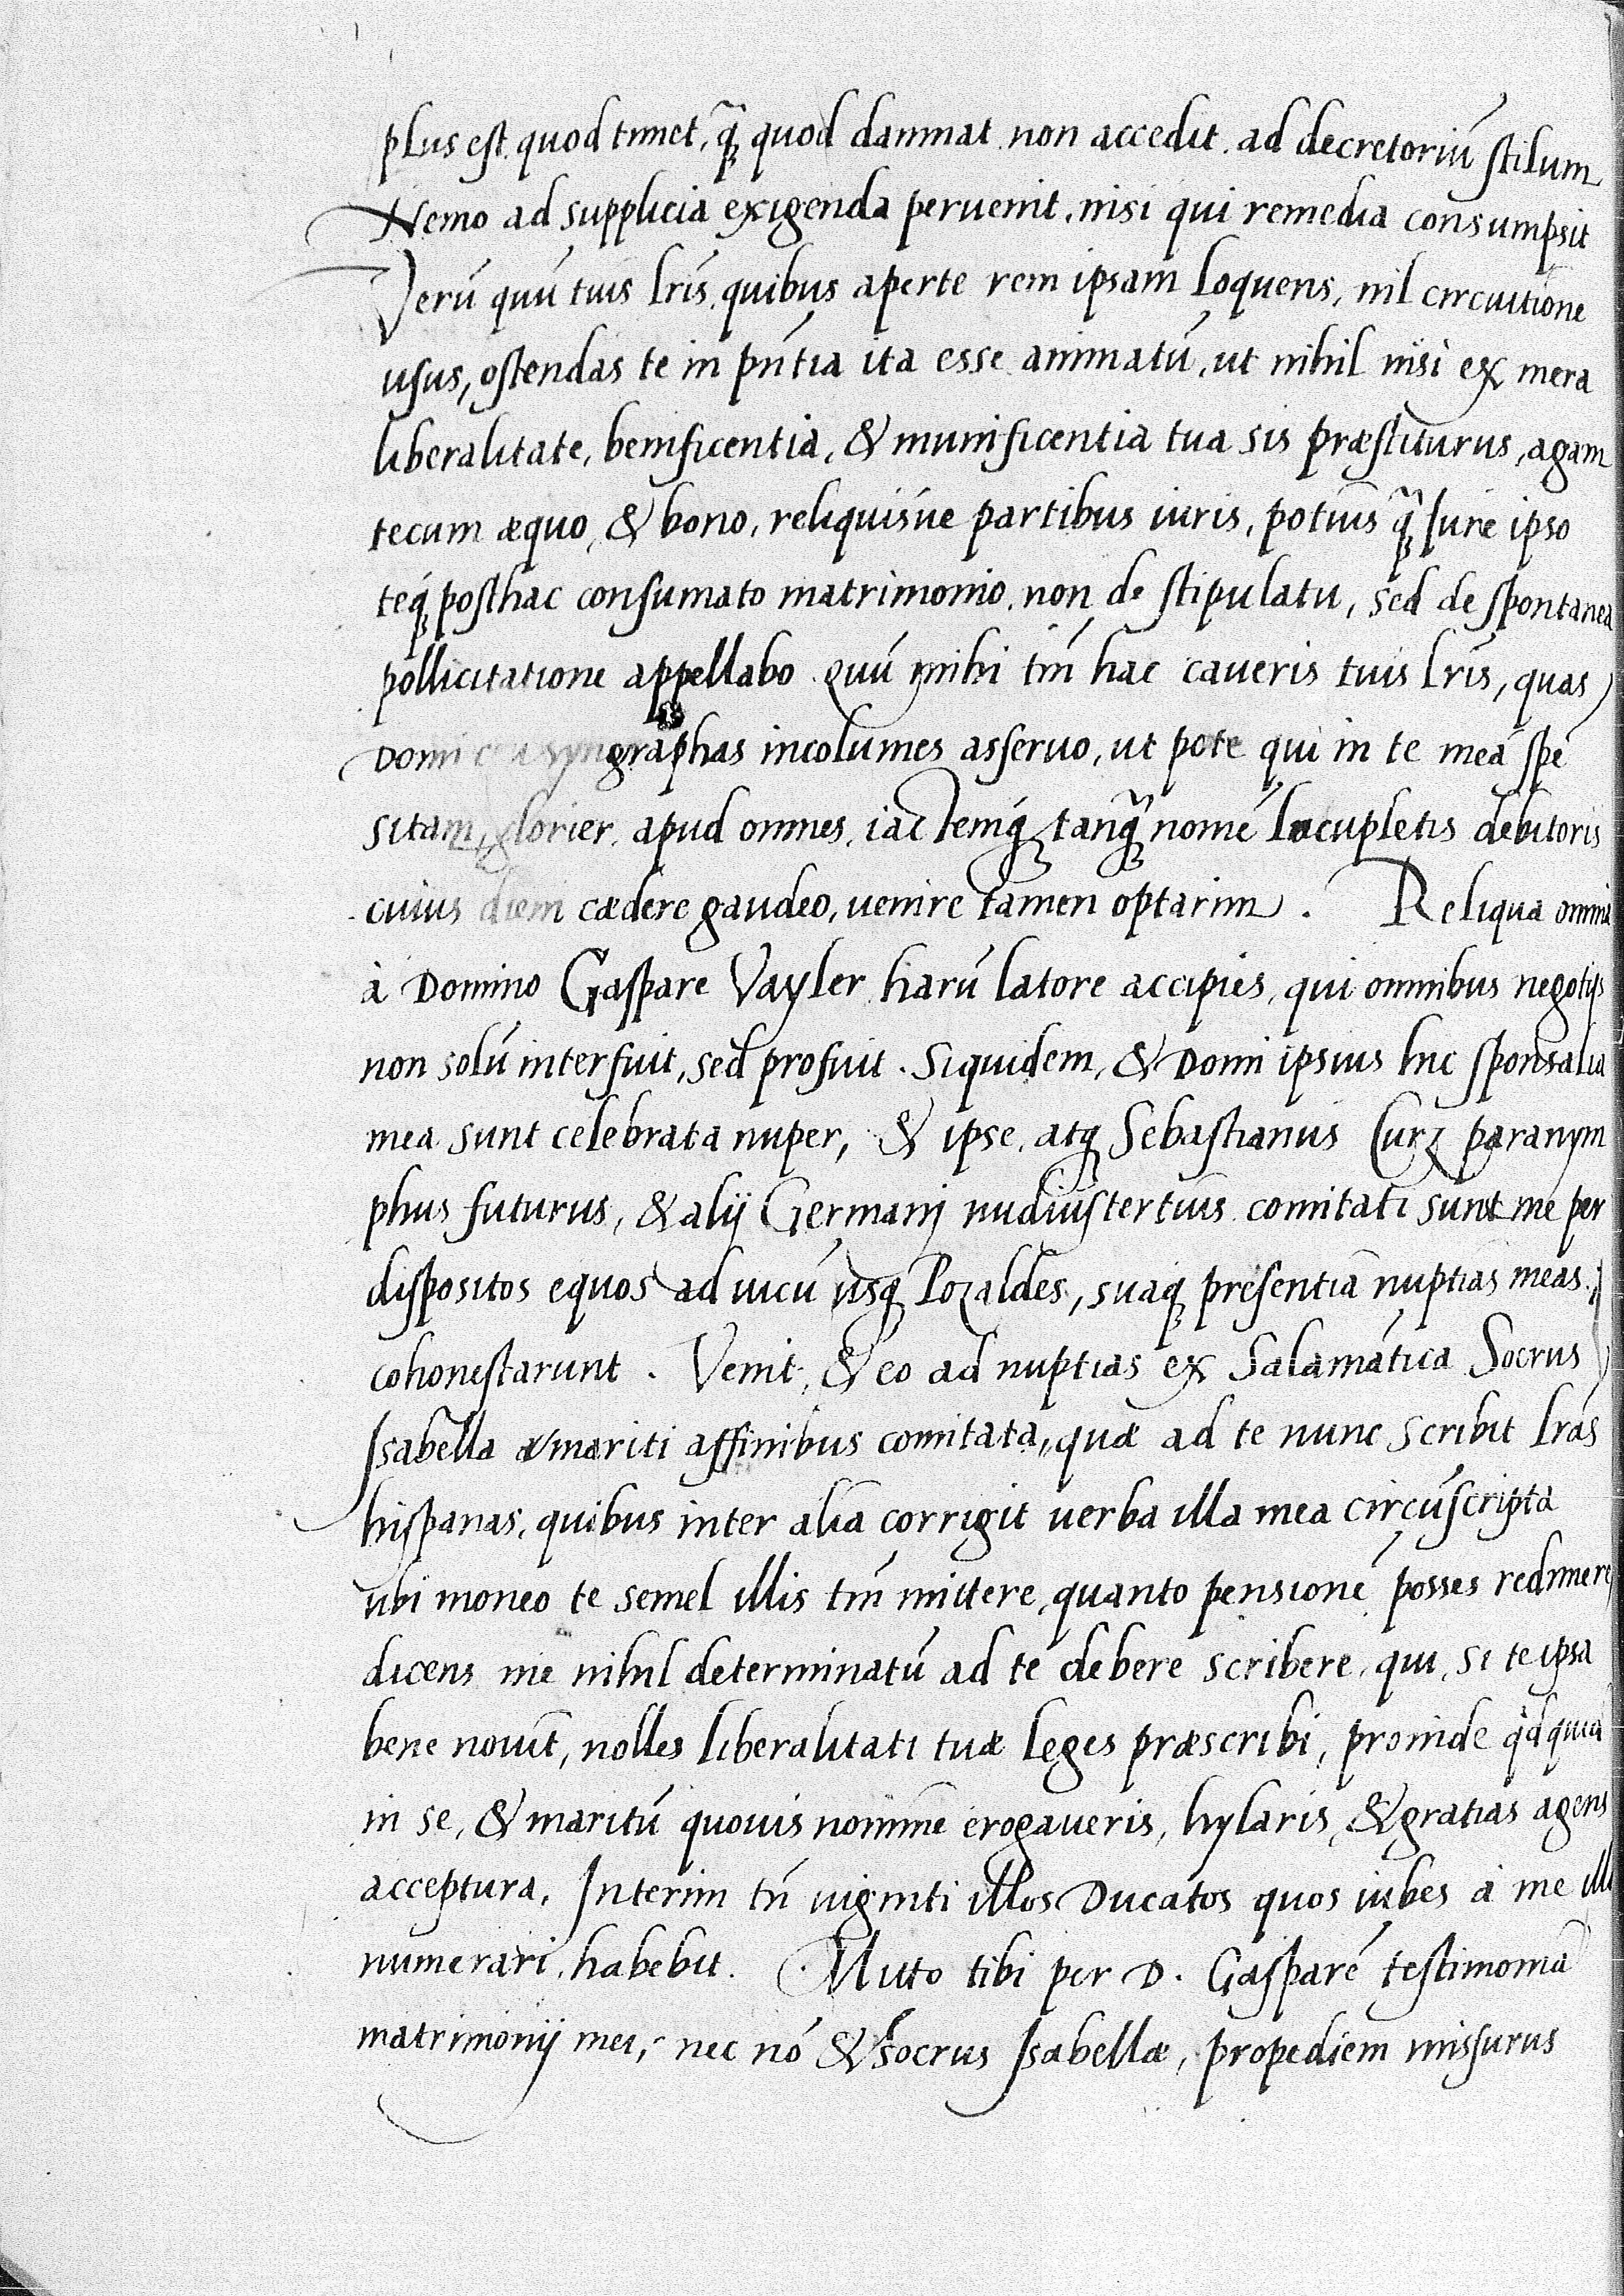 plus est quod timet, q̃ꝫ quod damnat non accedit ad decretoriũ stilum
Nemo ad supplicia exigenda peruenit, nisi qui remedia consumpsit
Verũ quũ tuis lr̃is, quibus aperte rem ipsam loquens, nil circuitione
usus, ostendas te in pñtia ita esse animatũ, ut nihil nisi ex mera
liberalitate, benificentia, & munificentia tua sis præstiturus, agam
tecum æquo, & bono, reliquisue partibus iuris, potius q̃ꝫ Iure ipso
teqꝫ posthac consumato matrimonio, non de stipulatu, sed de spontanea
pollicitatione appellabo quũ mihi tm̃ hac caueris tuis lr̃is, quas
Domi ceu syngraphas incolumes asseruo, ut pote qui in te meã spẽ
sitam, glorier apud omnes, iactemqꝫ tanq̃ꝫ nomẽ locupletis debitoris
cuius diem cædere gaudeo, uenire tamen optarim. Reliqua omnia
à Domino Gaspare Vayler harũ latore accipies, qui omnibus negotijs
non solũ interfuit, sed profuit. Siquidem, & Domi ipsius hic sponsalia
mea sunt celebrata nuper, & ipse, atqꝫ Sebastianus Curz paranym
phus futurus, & alij Germanj nudiustertius comitati sunt me per
dispositos equos ad uicũ usqꝫ Pozaldes, suaqꝫ presentia nuptias meas
cohonestarunt. Venit, & eo ad nuptias ex Salamãtica Socrus
Isabella a mariti affinibus comitata, quæ ad te nunc scribit lr̃as
hispanas, quibus inter alia corrigit uerba illa mea circũscripta
ubi moneo te semel illis tm̃ mittere, quanto pensionẽ posses redimere
dicens me nihil determinatũ ad te debere scribere, qui, si te ipsa
bene nouit, nolles liberalitati tuæ leges præscribi, proinde qdquid
in se, & maritũ quouis nomine erogaueris, hylaris, & gratias agens
acceptura. Interim tñ uiginti illos Ducatos quos iubes à me illi
numerari, habebit. Mitto tibi per D. Gasparẽ testimonia
matrimonij mei, nec nõ & socrus Isabellæ, propediem missurus